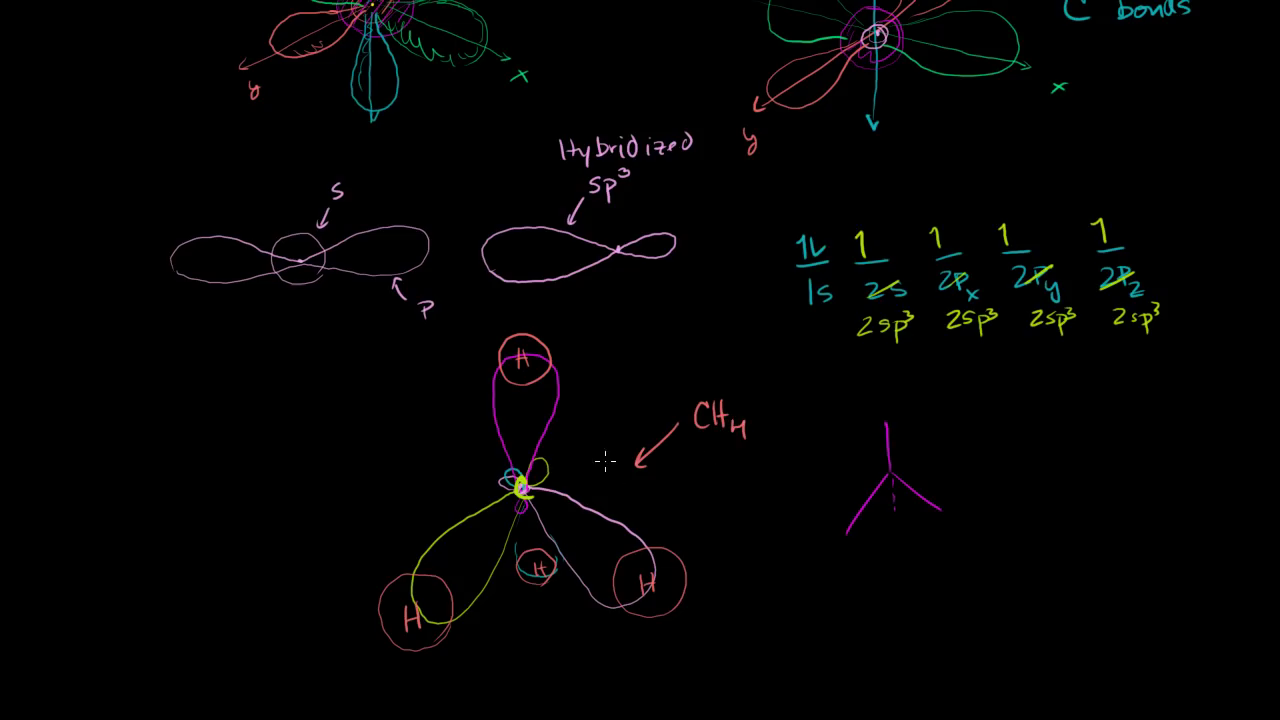 C bonds
x
y
x
y
Hybridized
sp³
s
p
1 1 1 1
1s 2s 2px 2py 2pz
2sp³ 2sp³ 2sp³ 2sp³
H
CH4
H
H
H